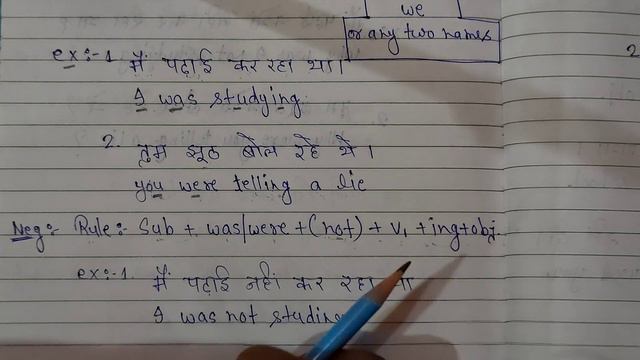 we
or any two names
2
ex:-1 मैं पढ़ाई कर रहा था।
I was studying
2. तुम झूठ बोल रहे थे।
you were telling a lie
Neg:- Rule:- Sub + was/were +(not) + V₁ +ing+obj.
ex:-1. मैं पढ़ाई नहीं कर रहा
I was not